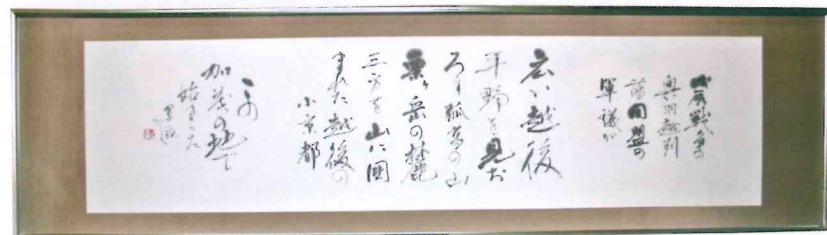 戊辰戦争の
奥羽越列
藩同盟の
軍議が
広い越後
平野を見お
ろす孤高の山
粟ヶ岳の麓
三方を山に囲
まれた越後の
小京都
この
加茂の地で
始まった